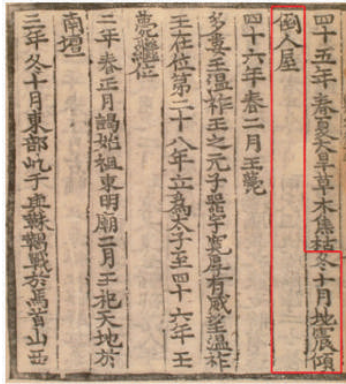 四十五年春夏大旱草木焦枯冬十月地震傾
倒人屋
四十六年春二月王薨
多婁王温祚王之元子器宇寬厚有威望温祚
王在位第二十八年立爲太子至四十六年王
薨繼位
二年春正月謁始祖東明廟二月王祀天地於
南壇
三年冬十月東部屹于與靺鞨戰於馬首山西